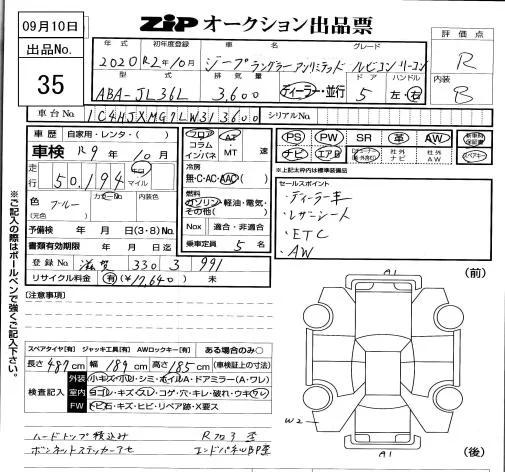 09月10日
ZIP オークション出品票
出品No.
35
年式 初年度登録 車名 グレード
2020 R2年10月 ジープラングラーアンリミテッド ルビコン
型式 排気量 ドア ハンドル
ABA-JL36L 3,600 ディーラー・並行 5 左・右
評価点
R
内装
B
車台No. シリアルNo.
車歴 自家用・レンタ・( )
車検 R9年10月
走行 50,194 キロ マイル
色 ブルー カラーNo. 内装色
(元色)
予備検 年 月 日(3・8)No.
書類有効期限 年 月 日迄
登録No. 滋賀 330 3 991
リサイクル料金 有(¥17,640) 未
フロア コラム インパネ
AT ・ MT 速
冷房
無・C・AC・AAC
燃料
ガソリン・軽油・電気・その他( )
Nox 適合・非適合
乗車定員 5 名
PS PW SR 革 AW
ナビ エアB 社外ナビ 社外AW
※上記太枠内は標準装備品
セールスポイント
・ディーラー車
・レザーシート
・ETC
・AW
[注意事項]
スペアタイヤ[有] ジャッキ工具[有] AWロックキー[有] ある場合のみ○
長さ 487cm 幅 189cm 高さ 185cm (車検証上の寸法)
検査記入
外装 小キズ・小凹・シミ・ホイルA・ドアミラー(A・ワレ)
室内 ヨゴレ・キズ・スレ・コゲ・穴・キレ・破れ・ウキ・ワレ
FW トビ石・キズ・ヒビ・リペア跡・X要ス
ハードトップ積込み Rフロア歪
ボンネットステッカーアセ エンドパネルBP歪
A1
(前)
W2
A1
(後)
※ご記入の際はボールペンで強くご記入下さい。